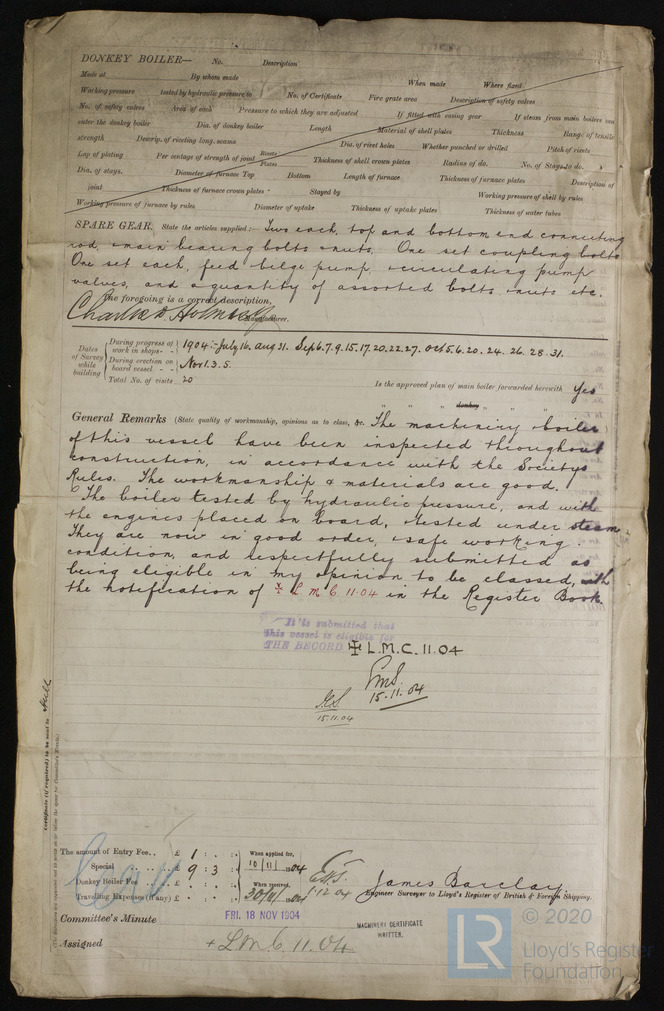 DONKEY BOILER— No. Description
Made at By whom made When made Where fixed
Working pressure tested by hydraulic pressure to No. of Certificate Fire grate area Description of safety valves
No. of safety valves Area of each Pressure to which they are adjusted If fitted with easing gear If steam from main boilers can
enter the donkey boiler Dia. of donkey boiler Length Material of shell plates Thickness Range of tensile
strength Descrip. of riveting long. seams Dia. of rivet holes Whether punched or drilled Pitch of rivets
Lap of plating Per centage of strength of joint Rivets Plates Thickness of shell crown plates Radius of do. No. of Stays to do.
Dia. of stays. Diameter of furnace Top Bottom Length of furnace Thickness of furnace plates Description of
joint Thickness of furnace crown plates Stayed by Working pressure of shell by rules
Working pressure of furnace by rules Diameter of uptake Thickness of uptake plates Thickness of water tubes
SPARE GEAR. State the articles supplied:— Two each, top and bottom end connecting
rod, & main bearing bolts & nuts. One set coupling bolts
One set each, feed & bilge pump, & circulating pump
valves, and a quantity of assorted bolts & nuts etc.
The foregoing is a correct description,
Charles D. Holmes & Co Manufacturer.
Dates of Survey while building
During progress of work in shops - - 1904:- July 16. Aug 31. Sep 6. 7. 9. 15. 17. 20. 22. 27. Oct 5. 6. 20. 24. 26. 28. 31.
During erection on board vessel - - Nov 1. 3. 5.
Total No. of visits 20
Is the approved plan of main boiler forwarded herewith Yes
" " " donkey " " "
General Remarks (State quality of workmanship, opinions as to class, &c. The machinery & boiler
of this vessel have been inspected throughout
construction, in accordance with the Societys
Rules. The workmanship & materials are good.
The boiler tested by hydraulic pressure, and with
the engines placed on board, & tested under steam.
They are now in good order, & safe working
condition, and respectfully submitted as
being eligible in my opinion to be classed, with
the notification of ✠ L M C 11.04 in the Register Book.
It is submitted that
this vessel is eligible for
THE RECORD ✠ L.M.C. 11.04
15.11.04
15.11.04
Certificate (if required) to be sent to Hull
The amount of Entry Fee . . £ 1 : . : .
Special £ 9 : 3 :
Donkey Boiler Fee £ : :
Travelling Expenses (if any) £ : :
When applied for, 10/11/1904
When received, 30/11/1904
1.12.04
James Barclay
Engineer Surveyor to Lloyd's Register of British & Foreign Shipping.
Committee's Minute FRI. 18 NOV 1904
MACHINERY CERTIFICATE
WRITTEN.
Assigned + L M C. 11.04
LR © 2020
Lloyd's Register
Foundation